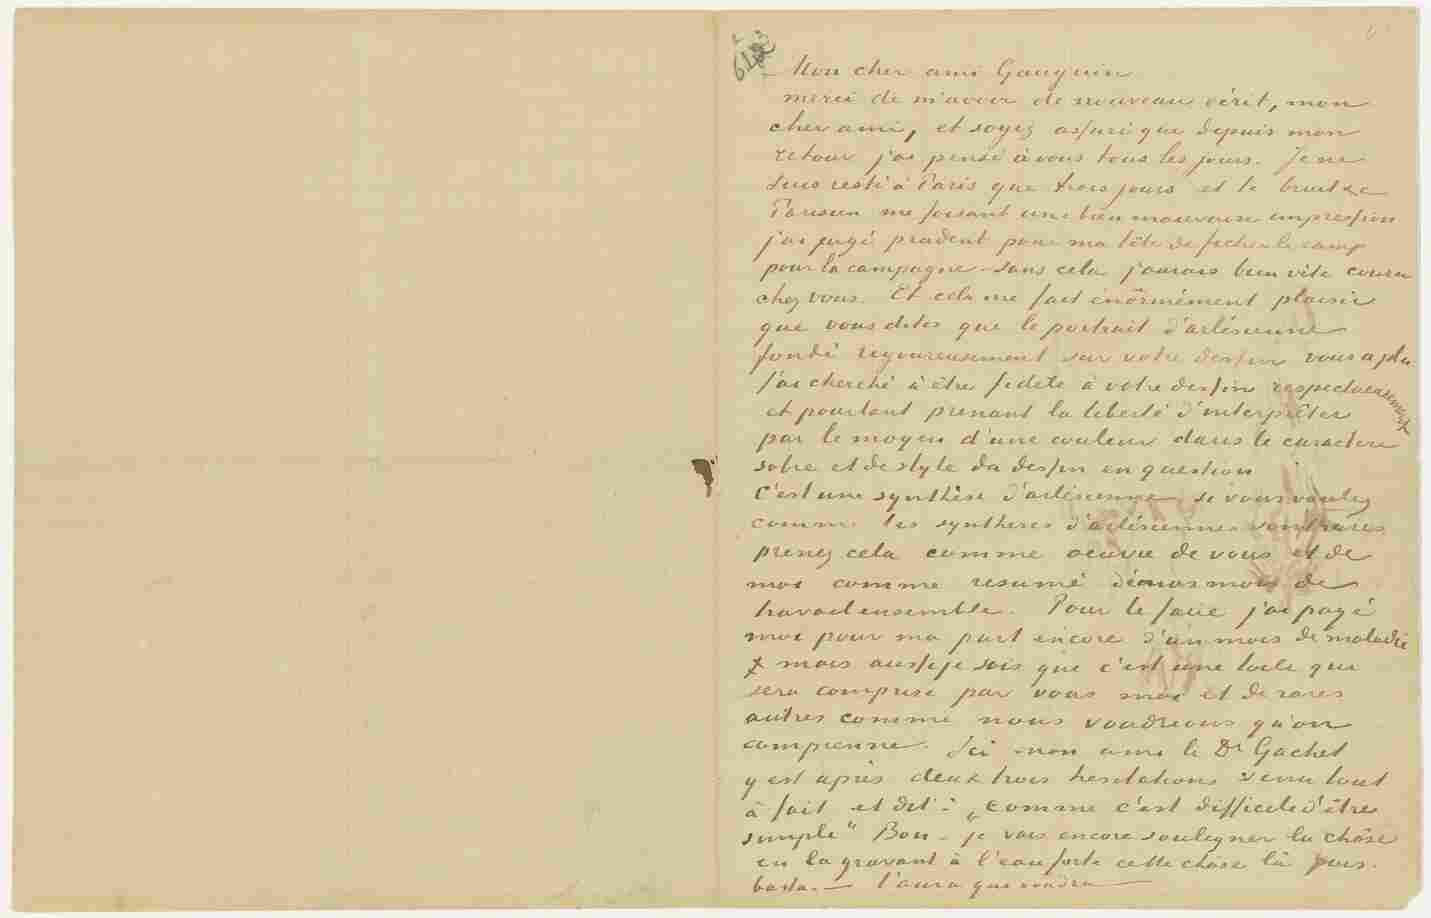 Mon cher ami Gauguin
merci de m'avoir de nouveau écrit, mon
cher ami, et soyez assuré que depuis mon
retour j'ai pensé à vous tous les jours. Je ne
suis resté à Paris que trois jours et le bruit &c
Parisien me faisant une bien mauvaise impression
j'ai jugé prudent pour ma tête de ficher le camp
pour la campagne – sans cela j'aurais bien vite couru
chez vous. Et cela me fait énormément plaisir
que vous dites que le portrait d'arlésienne
fondé rigoureusement sur votre dessin vous a plu.
J'ai cherché à être fidèle à votre dessin respectueusement
et pourtant prenant la liberté d'interpréter
par le moyen d'une couleur dans le caractère
sobre et de style du dessin en question
C'est une synthèse d'arlésienne si vous voulez
comme les synthèses d'arlésiennes sont rares
prenez cela comme oeuvre de vous et de
moi comme resumé de nos mois de
travail ensemble. Pour le faire j'ai payé
moi pour ma part encore d'un mois de maladie
mais aussi je sais que c'est une toile qui
sera comprise par vous moi et de rares
autres comme nous voudrions qu'on
comprenne. Ici mon ami le Dr Gachet
y est après deux trois hesitations venu tout
à fait et dit: „comme c'est difficile d'être
simple“ Bon – je vais encore souligner la chôse
en la gravant à l'eau forte cette chôse là puis
basta. — l'aura qui voudra —